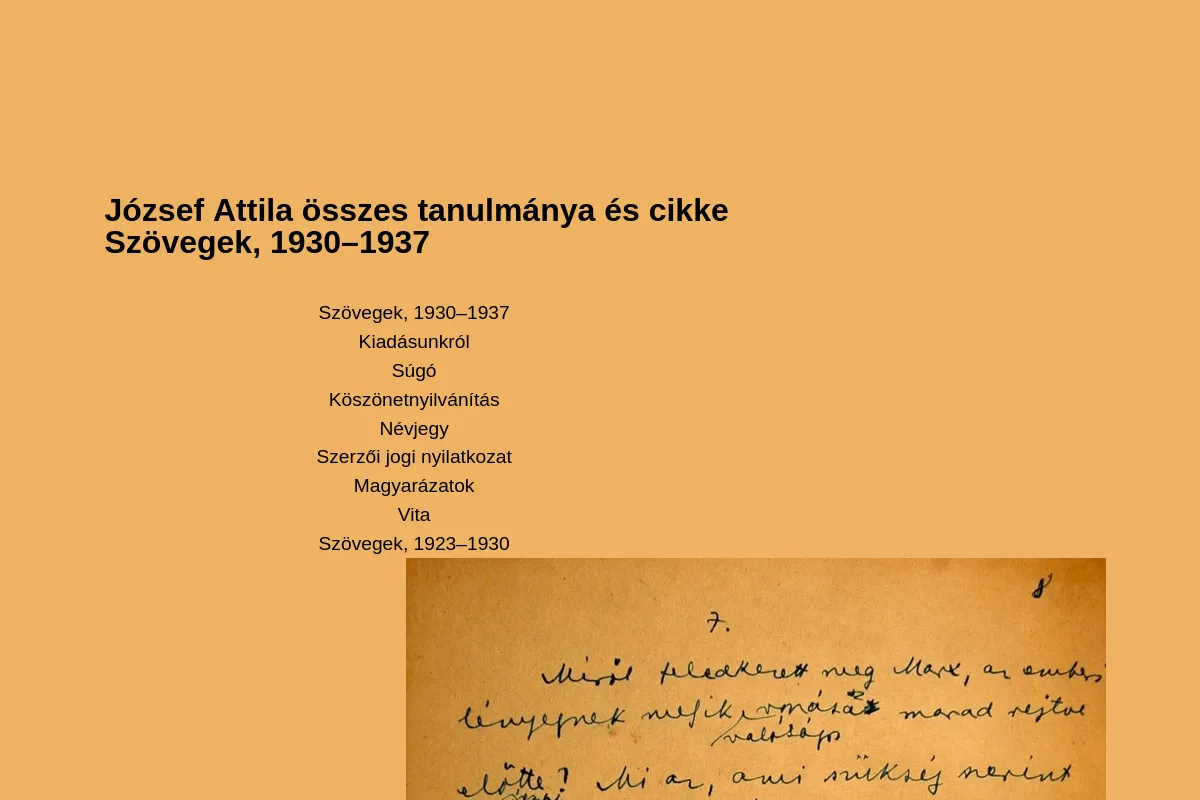 József Attila összes tanulmánya és cikke
Szövegek, 1930–1937
Szövegek, 1930–1937
Kiadásunkról
Súgó
Köszönetnyilvánítás
Névjegy
Szerzői jogi nyilatkozat
Magyarázatok
Vita
Szövegek, 1923–1930
8
7.
Miről feledkezett meg Marx, az emberi
lényegnek melyik vonása marad rejtve
valóságos
előtte? Mi az, ami szükség szerint